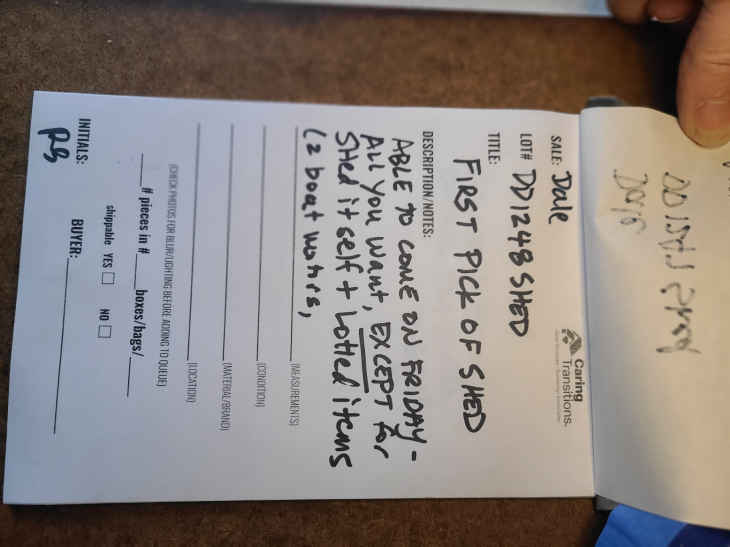 Caring
Transitions.
SALE: Dale
LOT# DD1248 SHED
TITLE:
FIRST PICK OF SHED
DESCRIPTION/NOTES:
ABLE TO COME ON FRIDAY -
ALL YOU WANT, EXCEPT for
SHed itself + Lotted items
(2 boat motors,
(MEASUREMENTS)
(CONDITION)
(MATERIAL/BRAND)
(LOCATION)
(CHECK PHOTOS FOR BLUR/LIGHTING BEFORE ADDING TO QUEUE)
# pieces in # boxes/bags/
shippable YES NO
INITIALS: BUYER: